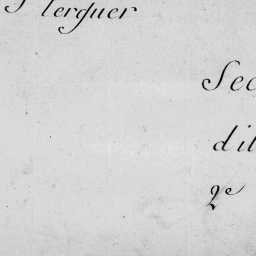 lerguer
Sec
dit
2e